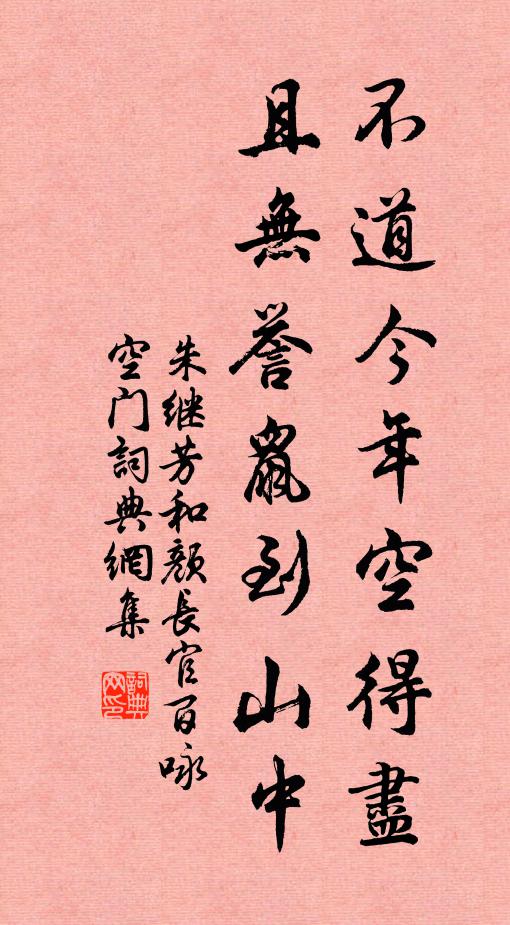 不道今年空得盡
且無誉鼠到山中
朱继芳和颜長官百咏
空门詞典網集
詞典網印